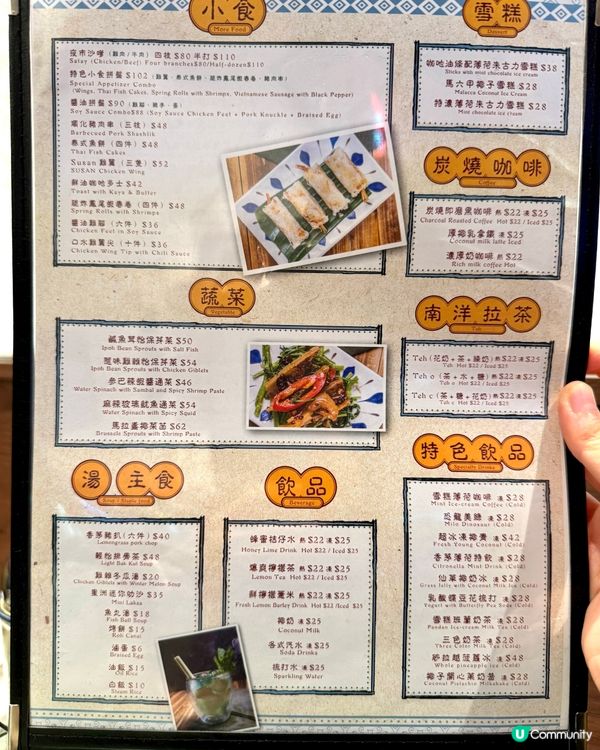 小食
More Food
夜市沙嗲 (雞肉/牛肉) 四枝 $80 半打 $110
Satay (Chicken/Beef) Four branches$80/Half-dozen$110
特色小食拼盤 $102
Special Appetizer Combo
(Wings, Thai Fish Cakes, Spring Rolls with Shrimps, Vietnamese Sausage with Black Pepper)
醬油拼盤 $90
Soy Sauce Combo$88 (Soy Sauce Chicken Feet + Pork Knuckle + Braised Egg)
碳化豬肉串 (三枝) $48
Barbecued Pork Shashlik
泰式魚餅 (四件) $48
Thai Fish Cakes
Susan 雞翼 (三隻) $52
SUSAN Chicken Wing
鮮油咖吔多士 $42
Toast with Kaya & Butter
(四件) $48
Spring Rolls with Shrimps
醬油雞腳 (六件) $36
Chicken Feet in Soy Sauce
口水雞翼尖 (十件) $36
Chicken Wing Tip with Chili Sauce
蔬菜
Vegetable
鹹魚茸怡保芽菜 $50
Ipoh Bean Sprouts with Salt Fish
怡保芽菜 $54
Ipoh Bean Sprouts with Chicken Giblets
參巴辣蝦醬通菜 $46
Water Spinach with Sambal and Spicy Shrimp Paste
麻辣琉璃魷魚通菜 $54
Water Spinach with Spicy Squid
馬拉盞椰菜苗 $62
Brussels Sprouts with Shrimp Paste
湯 主食
Soup / Staple food
香茅豬扒 (六件) $40
Lemongrass pork chop
輕怡排骨茶 $48
Light Bak Kut Soup
雞雜冬瓜湯 $20
Chicken Giblets with Winter Melon Soup
星洲迷你叻沙 $35
Mini Laksa
魚丸湯 $18
Fish Ball Soup
烤餅 $15
Roti Canai
滷蛋 $6
Braised Egg
油飯 $15
Oil Rice
白飯 $10
Steam Rice
飲品
Beverage
蜂蜜桔仔水 熱 $22 凍 $25
Honey Lime Drink Hot $22 / Iced $25
爆爽檸檬茶 熱 $22 凍 $25
Lemon Tea Hot $22 / Iced $25
鮮檸檬薏米 熱 $22 凍 $25
Fresh Lemon Barley Drink Hot $22 / Iced $25
椰奶 凍 $25
Coconut Milk
各式汽水 凍 $25
Soda Drinks
梳打水 凍 $25
Sparkling Water
雪糕
Dessert
咖吔油條配薄荷朱古力雪糕 $38
Sticks with mint chocolate ice cream
馬六甲椰子雪糕 $28
Malacca Coconut Ice Cream
特濃薄荷朱古力雪糕 $28
Mint chocolate ice cream
炭燒咖啡
Coffee
炭燒即磨黑咖啡 熱 $22 凍 $25
Charcoal Roasted Coffee Hot $22 / Iced $25
厚椰乳拿鐵 凍 $25
Coconut milk latte Iced
濃厚奶咖啡 熱 $22
Rich milk coffee Hot
南洋拉茶
Teh
Teh (花奶+茶+煉奶) 熱 $22 凍 $25
Teh Hot $22 / Iced $25
Teh o (茶+水+糖) 熱 $22 凍 $25
Teh o Hot $22 / Iced $25
Teh c (茶+糖+花奶) 熱 $22 凍 $25
Teh c Hot $22 / Iced $25
特色飲品
Specialty Drinks
雪糕薄荷咖啡 凍 $28
Mint Ice-cream Coffee (Cold)
恐龍美綠 凍 $28
Milo Dinosaur (Cold)
超冰凍椰青 凍 $42
Fresh Young Coconut (Cold)
香茅薄荷特飲 凍 $28
Citronella Mint Drink (Cold)
仙草椰奶冰 凍 $28
Grass Jelly with Coconut Milk Ice (Cold)
乳酸蝶豆花梳打 凍 $28
Yogurt with Butterfly Pea Soda (Cold)
雪糕班蘭奶茶 凍 $28
Pandan Ice-cream Milk Tea (Cold)
三色奶茶 凍 $28
Three Color Milk Tea (Cold)
砂拉越菠蘿冰 凍 $48
Whole pineapple ice (Cold)
椰子開心果奶昔 凍 $28
Coconut Pistachio Milkshake (Cold)
U Community